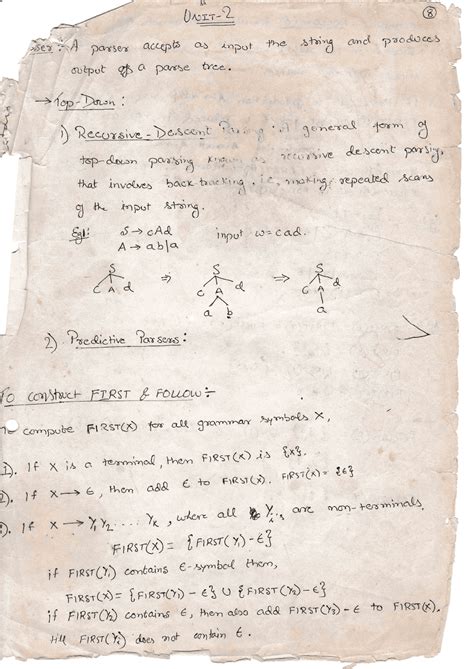 UNIT-2
8
ser : A parser accepts as input the string and produces
output of a parse tree.
→ Top-Down :
1) Recursive-Descent Parsing : A general form of
top-down parsing known as recursive descent parsing,
that involves back tracking, i.e, making repeated scans
of the input string.
Eg1: S → cAd input w = cad.
A → ab|a
S ⇒ S ⇒ S
c A d c A d c A d
a b a
2) Predictive Parsers :
TO CONSTRUCT FIRST & FOLLOW :-
To compute FIRST(X) for all grammar symbols X,
1). If X is a terminal, then FIRST(X) is {X}.
2). If X → ε, then add ε to FIRST(X). FIRST(X) = {ε}
3). If X → Y₁Y₂ .... Yk, where all Yi's are non-terminals,
FIRST(X) = {FIRST(Y₁) - ε}
if FIRST(Y₁) contains ε-symbol then,
FIRST(X) = {FIRST(Y₁) - ε} U {FIRST(Y₂) - ε}
if FIRST(Y₂) contains ε, then also add FIRST(Y₃) - ε to FIRST(X).
till FIRST(Yi) does not contain ε.